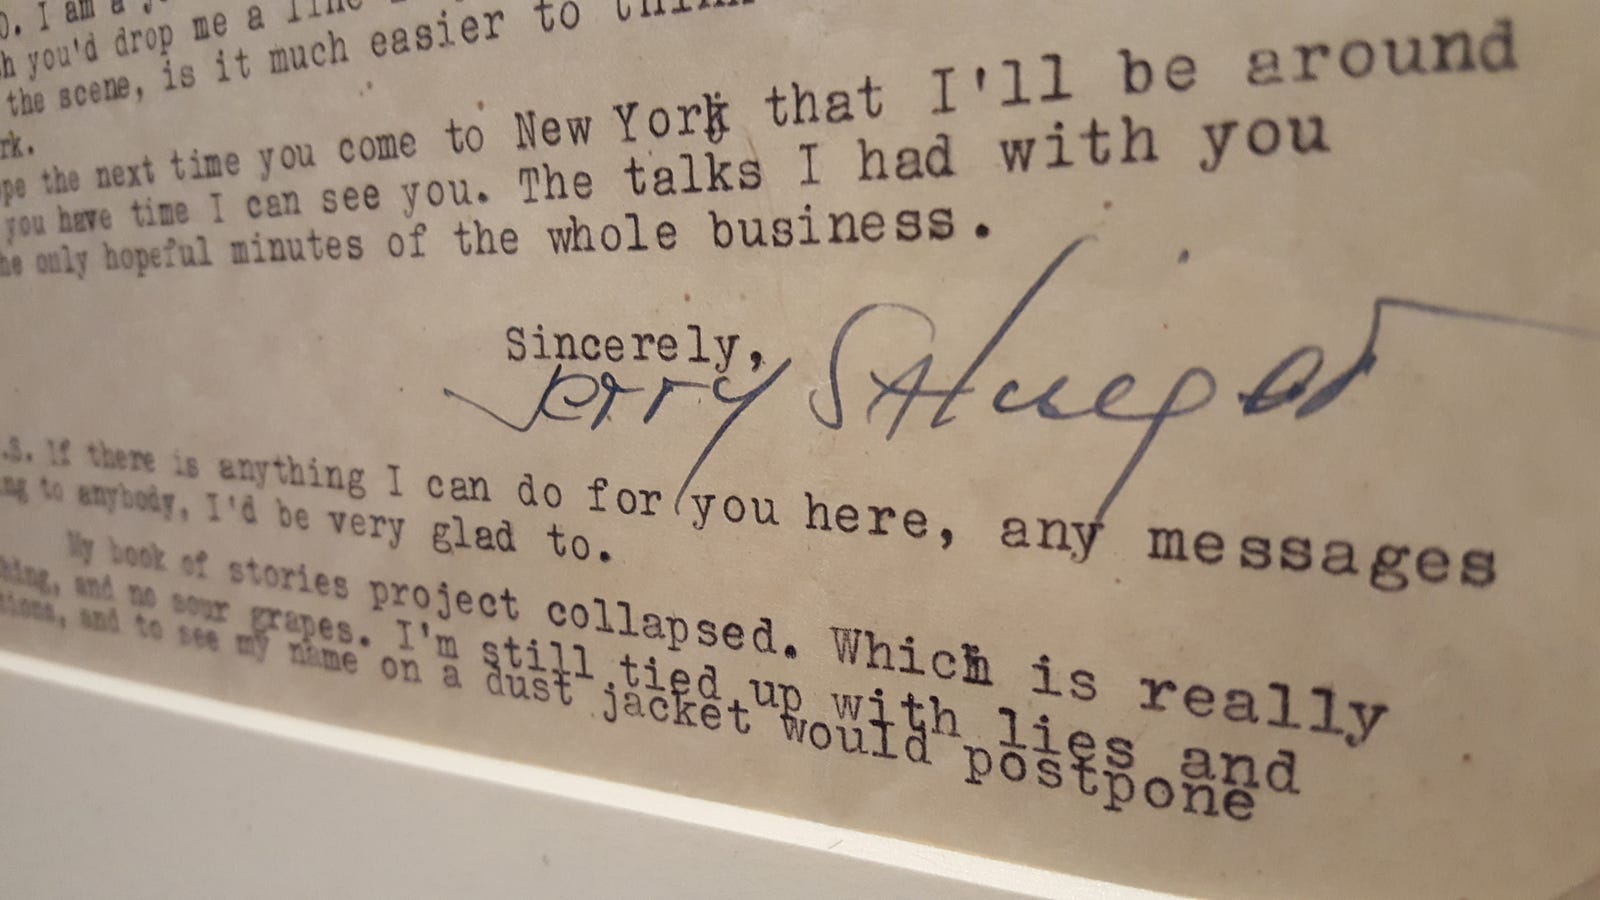 I am a
you'd drop me a line
the scene, is it much easier to
rk.
pe the next time you come to New York that I'll be around
you have time I can see you. The talks I had with you
he only hopeful minutes of the whole business.
Sincerely,
Jerry Salinger
.s. If there is anything I can do for you here, any messages
ng to anybody, I'd be very glad to.
My book of stories project collapsed. Which is really
hing, and no sour grapes. I'm still tied up with lies and
tions, and to see my name on a dust jacket would postpone